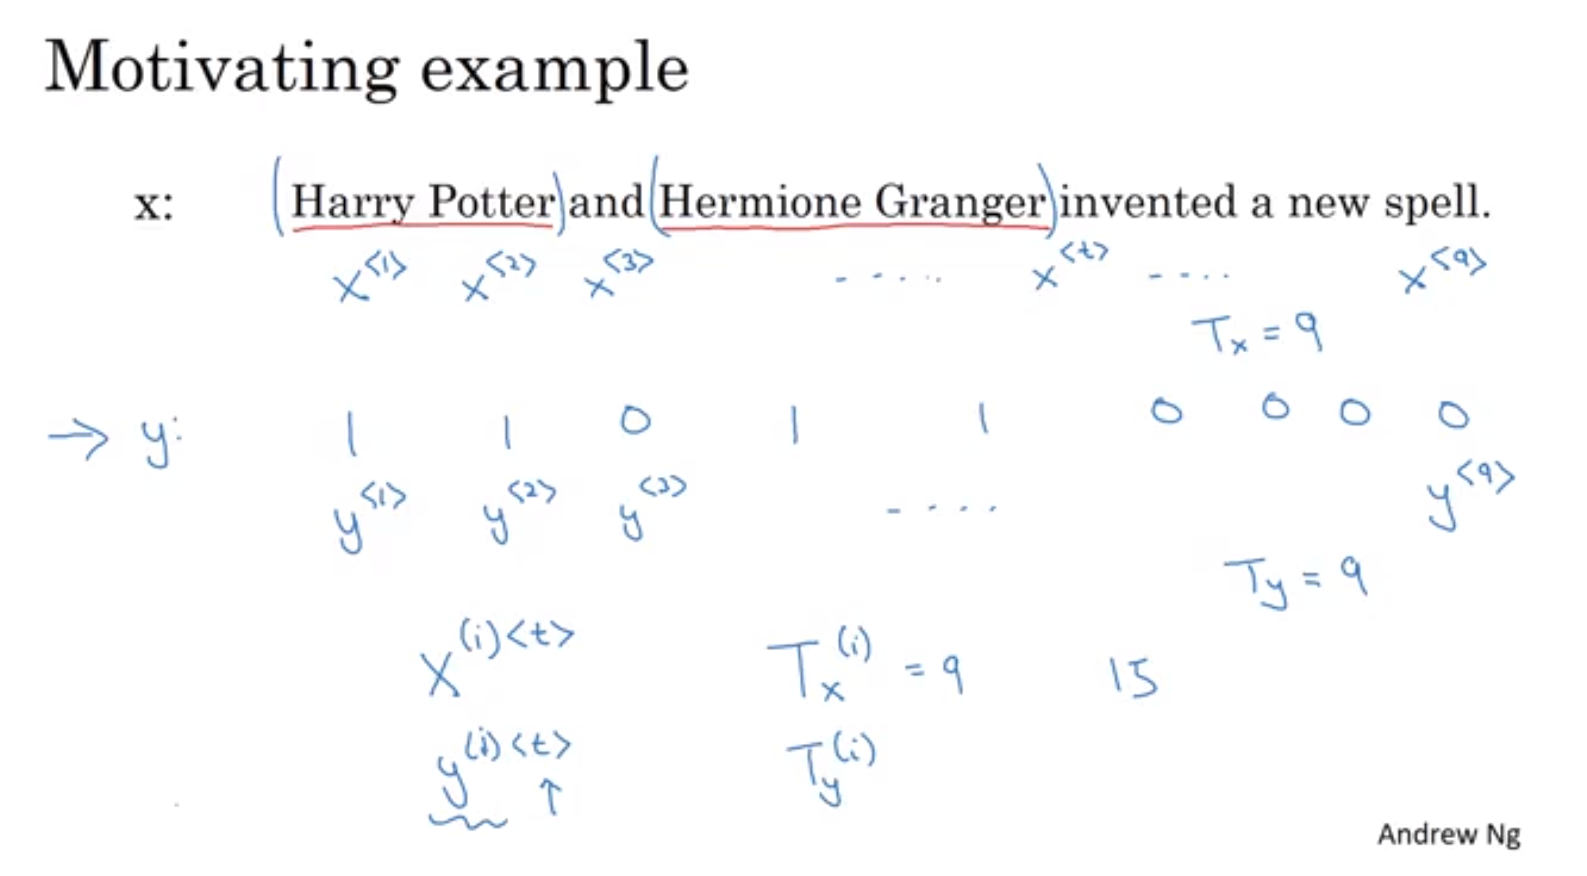 Motivating example
x: (Harry Potter) and (Hermione Granger) invented a new spell.
x<1> x<2> x<3> ..... x<t> .... x<9>
Tx = 9
→ y: 1 1 0 1 1 0 0 0 0
y<1> y<2> y<3> .... y<9>
Ty = 9
X(i)<t> Tx(i) = 9 15
y(i)<t> Ty(i)
↑
Andrew Ng